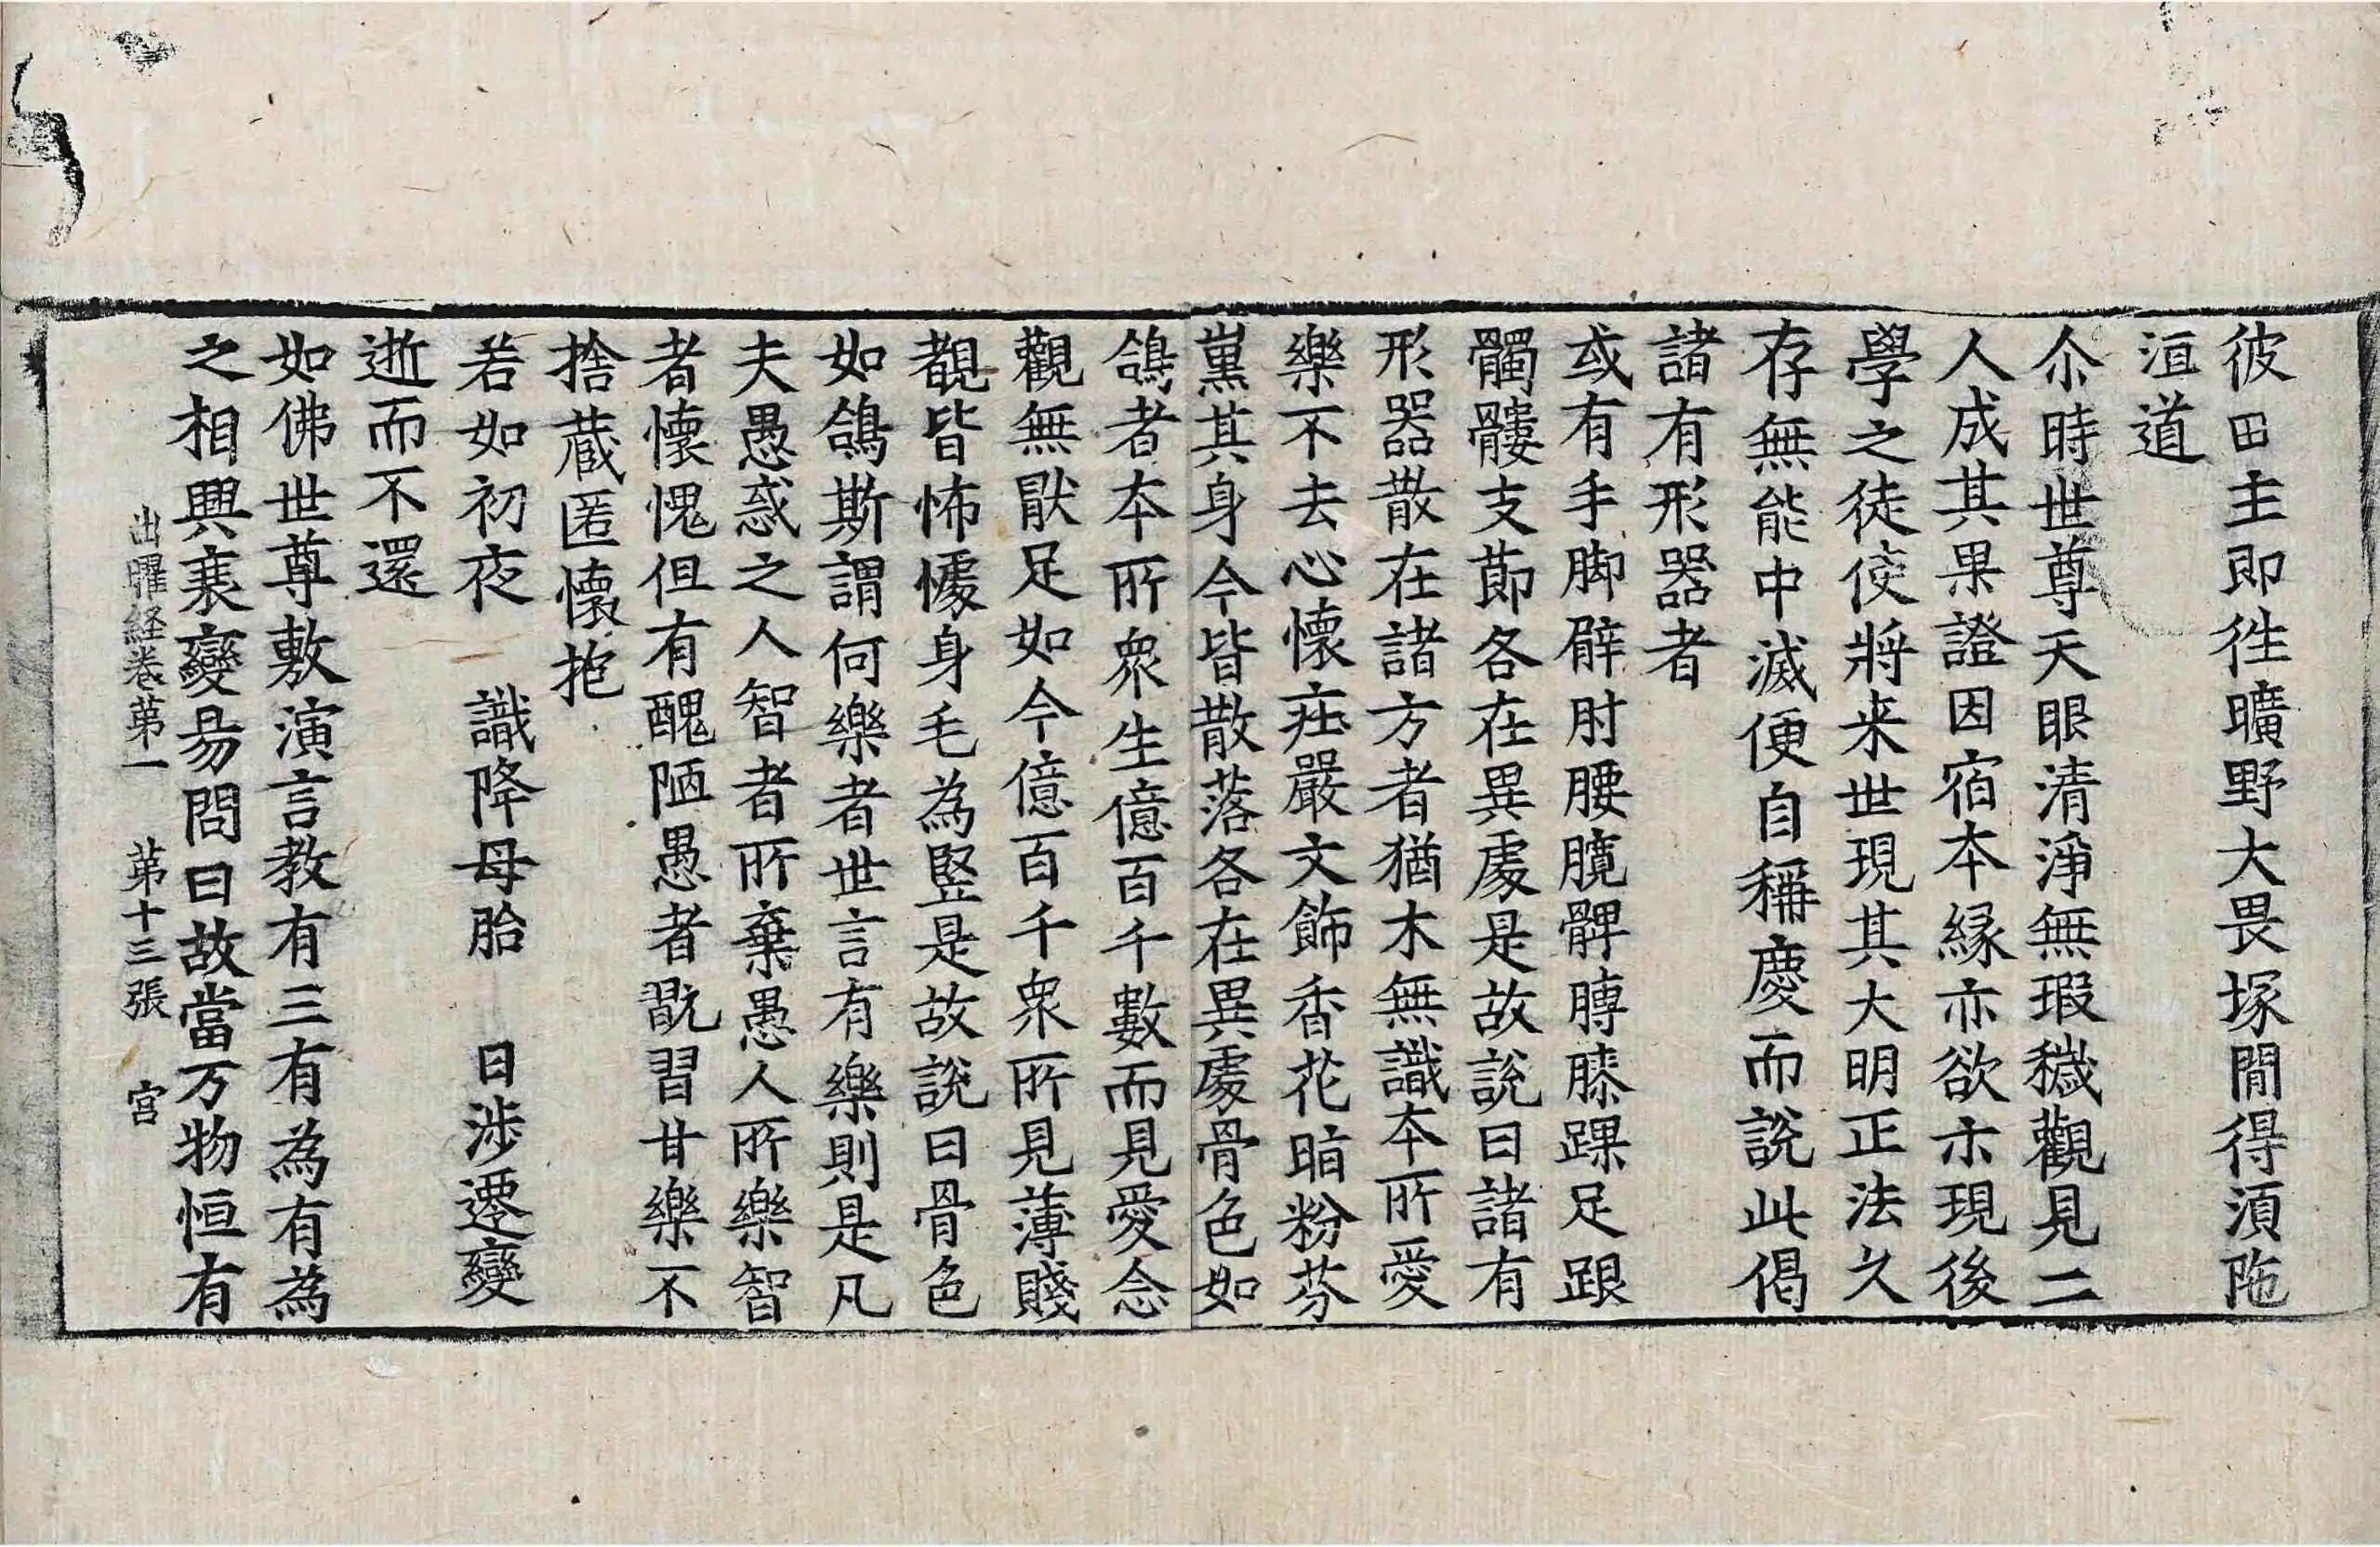 彼田主即徃曠野大畏塚閒得湏陁
洹道
尒時世尊天眼清淨無瑕穢觀見二
人成其果證因宿本縁亦欲示現後
學之徒使將来世現其大明正法久
存無能中滅便自稱慶而說此偈
諸有形器者
或有手脚臂肘腰臗髀膞膝踝足跟
髑髏支莭各在異處是故說曰諸有
形器散在諸方者猶木無識本所愛
樂不去心懷莊嚴文飾香花脂粉芬
薰其身今皆散落各在異處骨色如
鴿者本所衆生億百千數而見愛念
觀無猒足如今億百千衆所見薄賤
覩皆怖懅身毛為竪是故說曰骨色
如鴿斯謂何樂者世言有樂則是凡
夫愚惑之人智者所棄愚人所樂智
者懷愧但有醜陋愚者翫習甘樂不
捨蔵匿懷抱
若如初夜　識降母胎　日涉遷變
逝而不還
如佛世尊敷演言教有三有為有為
之相興衰變易問曰故當万物恒有
出曜経卷第一　第十三張　宮